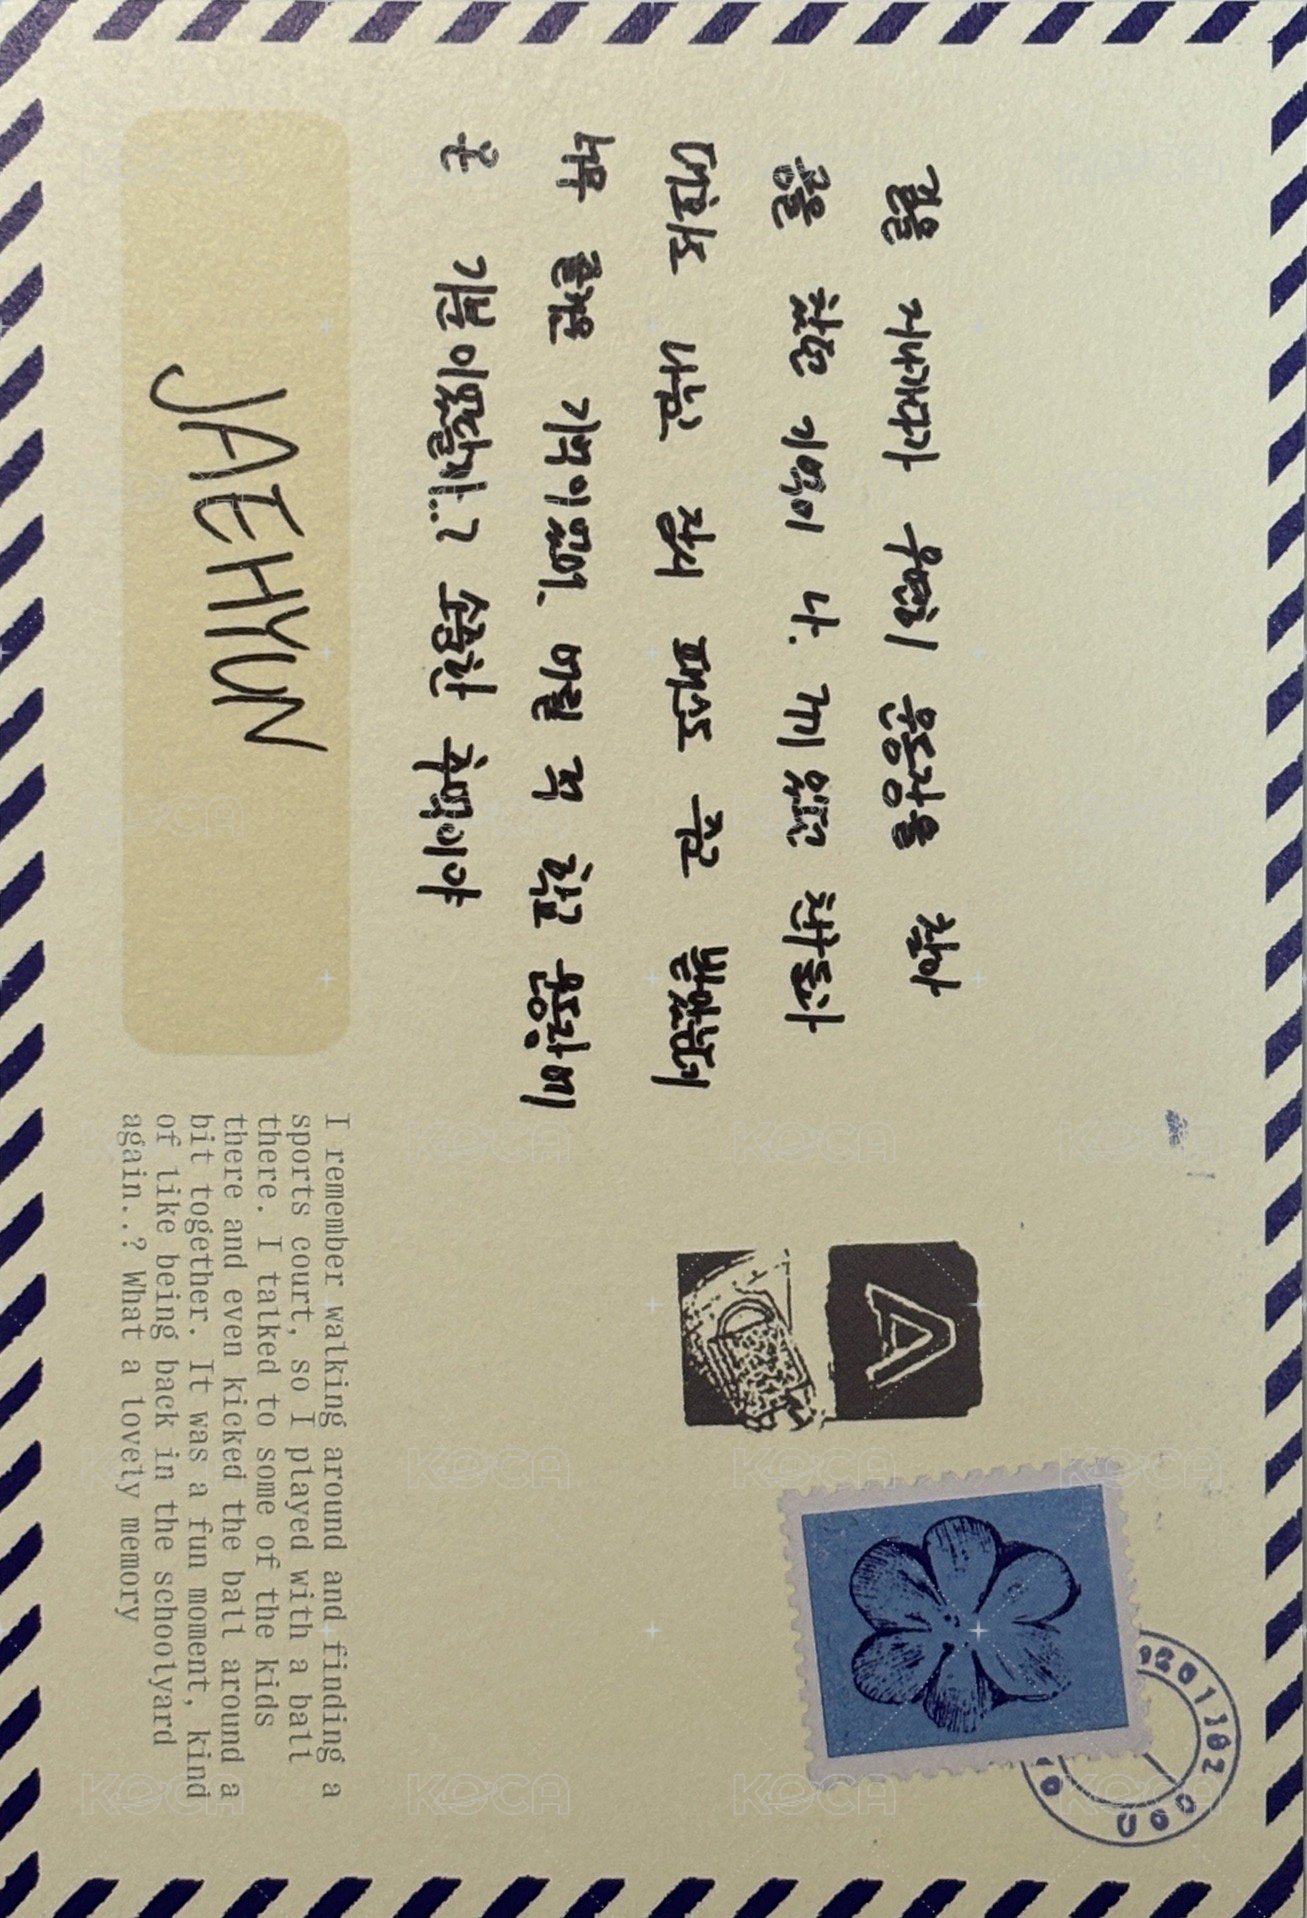 길을 지나가다가 우연히 운동장을 찾아
공을 찼던 기억이 나. 거기 있던 친구들과
대화도 나누고 잠시 패스도 주고 받았는데
너무 즐거운 기억이었어. 어릴 적 학교 운동장에
온 기분이었달까..? 소중한 추억이야
JAEHYUN
I remember walking around and finding a
sports court, so I played with a ball
there. I talked to some of the kids
there and even kicked the ball around a
bit together. It was a fun moment, kind
of like being back in the schoolyard
again..? What a lovely memory
A
KOCA